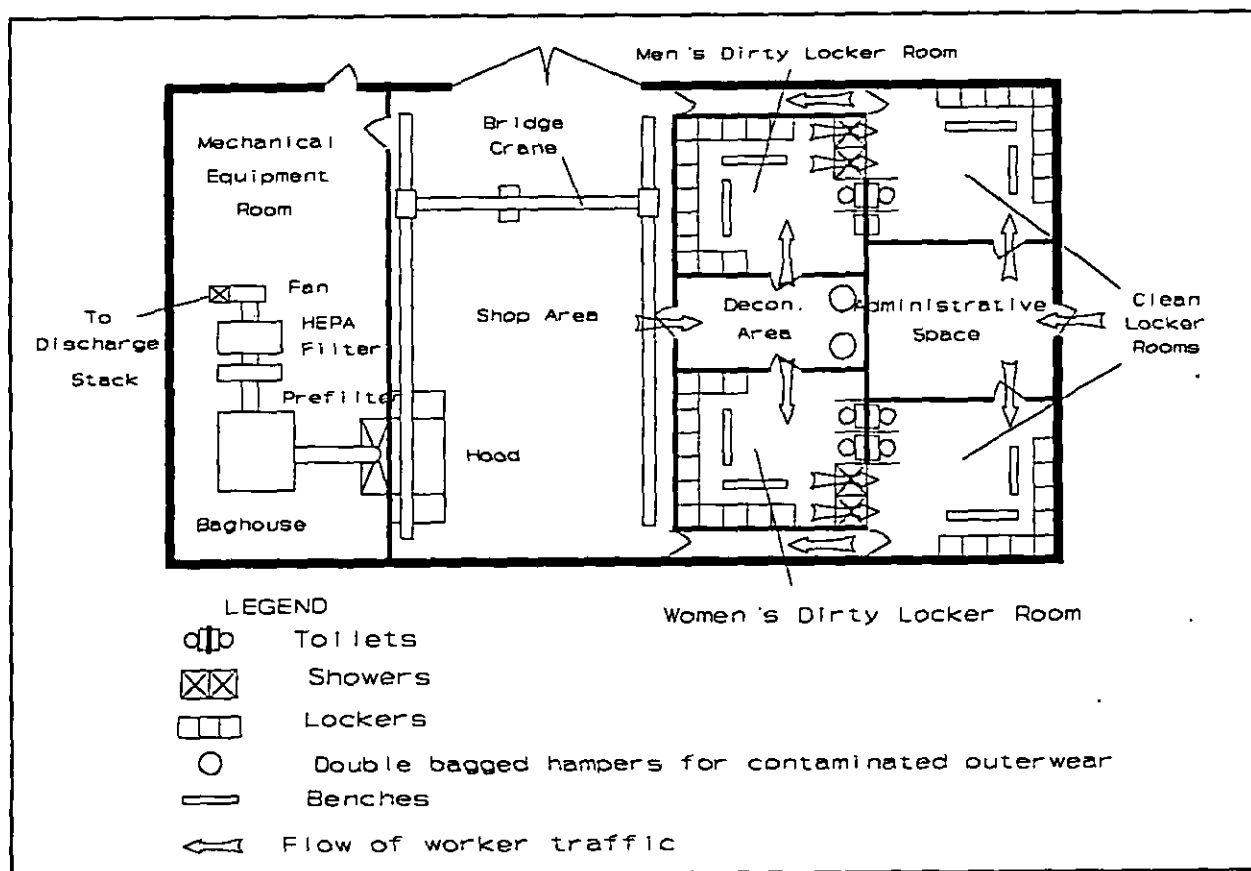 Men's Dirty Locker Room
Mechanical
Equipment
Room
Bridge
Crane
Fan
To
Discharge
Stack
HEPA
Filter
Prefilter
Shop Area
Decon.
Area
Administrative
Space
Clean
Locker
Rooms
Hood
Baghouse
Women's Dirty Locker Room
LEGEND
Toilets
Showers
Lockers
Double bagged hampers for contaminated outerwear
Benches
Flow of worker traffic